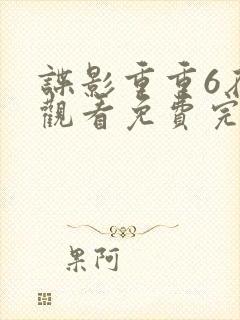 諜影重重6在
觀看免費完
果阿